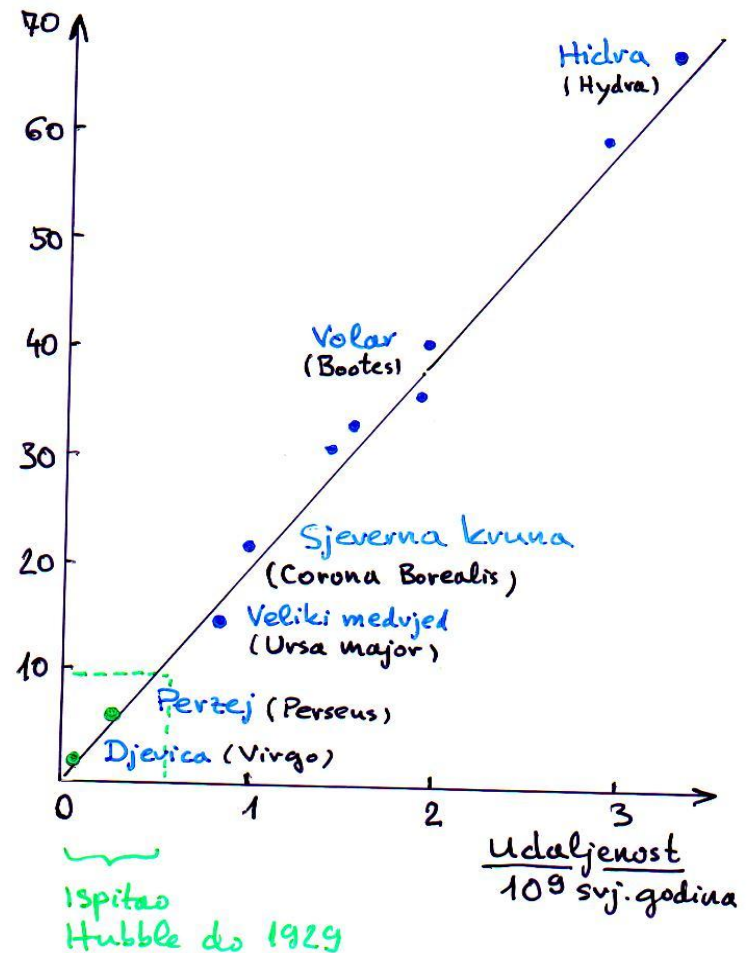 70
Hidra
(Hydra)
60
50
Volar
(Bootes)
40
30
Sjeverna kruna
(Corona Borealis)
20
Veliki medvjed
(Ursa major)
10
Perzej (Perseus)
Djevica (Virgo)
0 1 2 3
Udaljenost
10⁹ svj. godina
Ispitao
Hubble do 1929